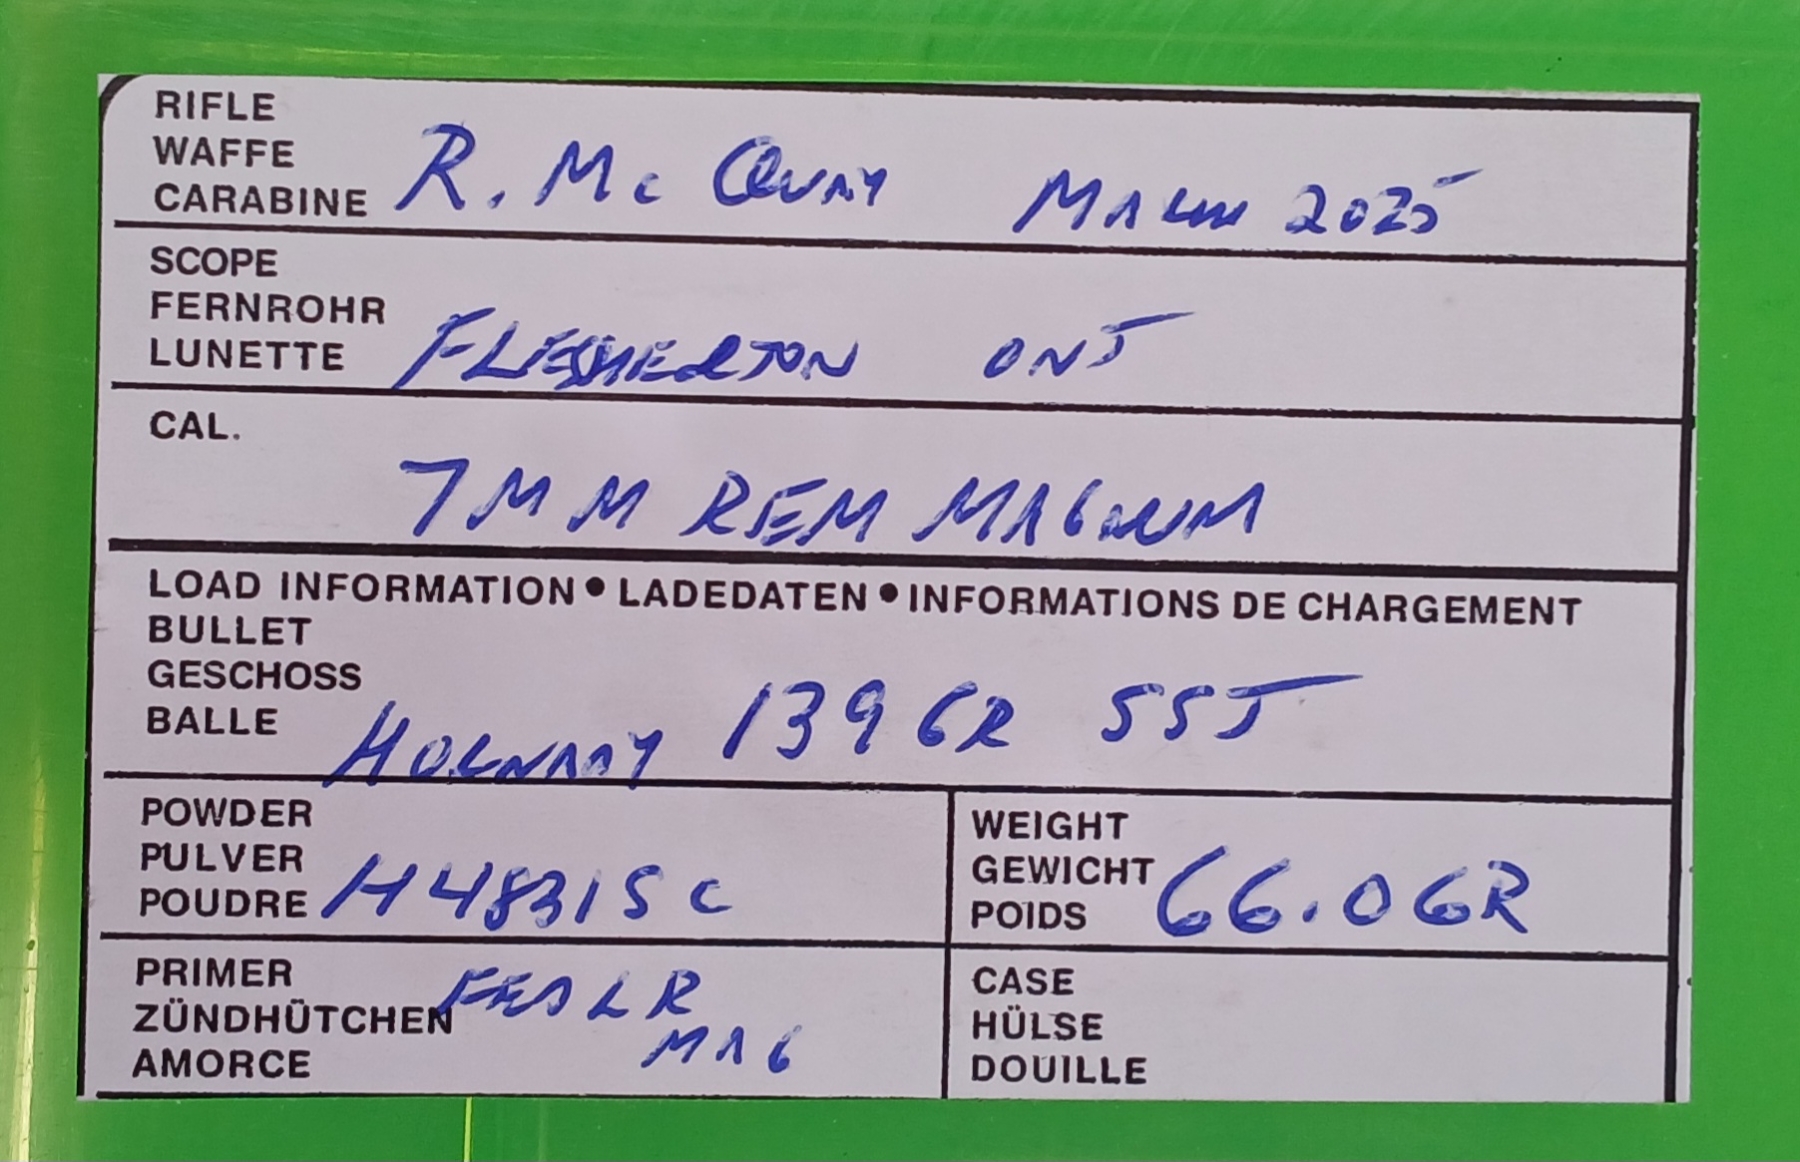 RIFLE
WAFFE
CARABINE R. Mc Quay March 2025
SCOPE
FERNROHR
LUNETTE FLESHERTON ONT
CAL.
7MM REM MAGNUM
LOAD INFORMATION • LADEDATEN • INFORMATIONS DE CHARGEMENT
BULLET
GESCHOSS
BALLE HORNADY 139 GR SST
POWDER
PULVER
POUDRE H4831SC
WEIGHT
GEWICHT
POIDS 66.0GR
PRIMER
ZÜNDHÜTCHEN FED LR
AMORCE MAG
CASE
HÜLSE
DOUILLE